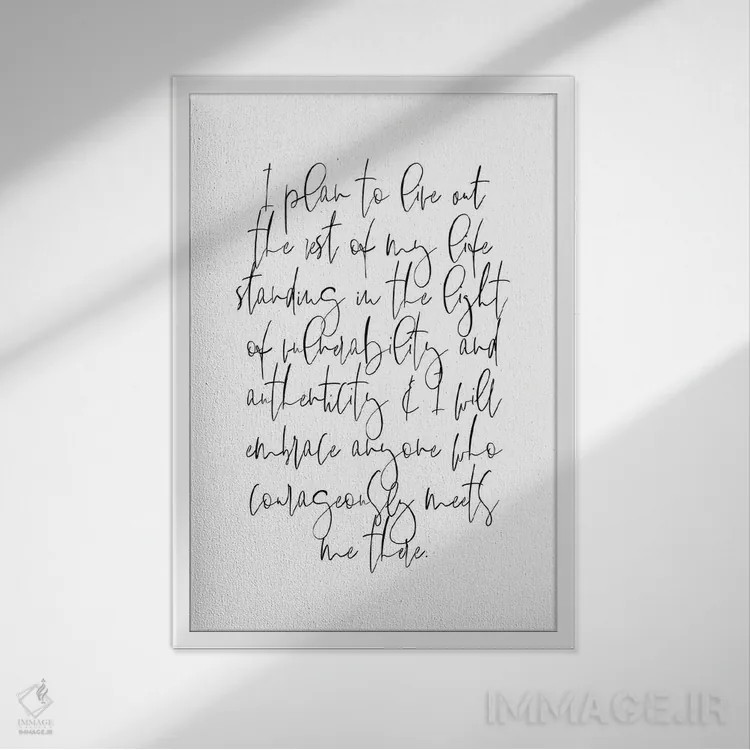 I plan to live out
the rest of my life
standing in the light
of vulnerability and
authenticity & I will
embrace anyone who
courageously meets
me there.
IMMAGE
IMMAGE.IR
IMMAGE.IR